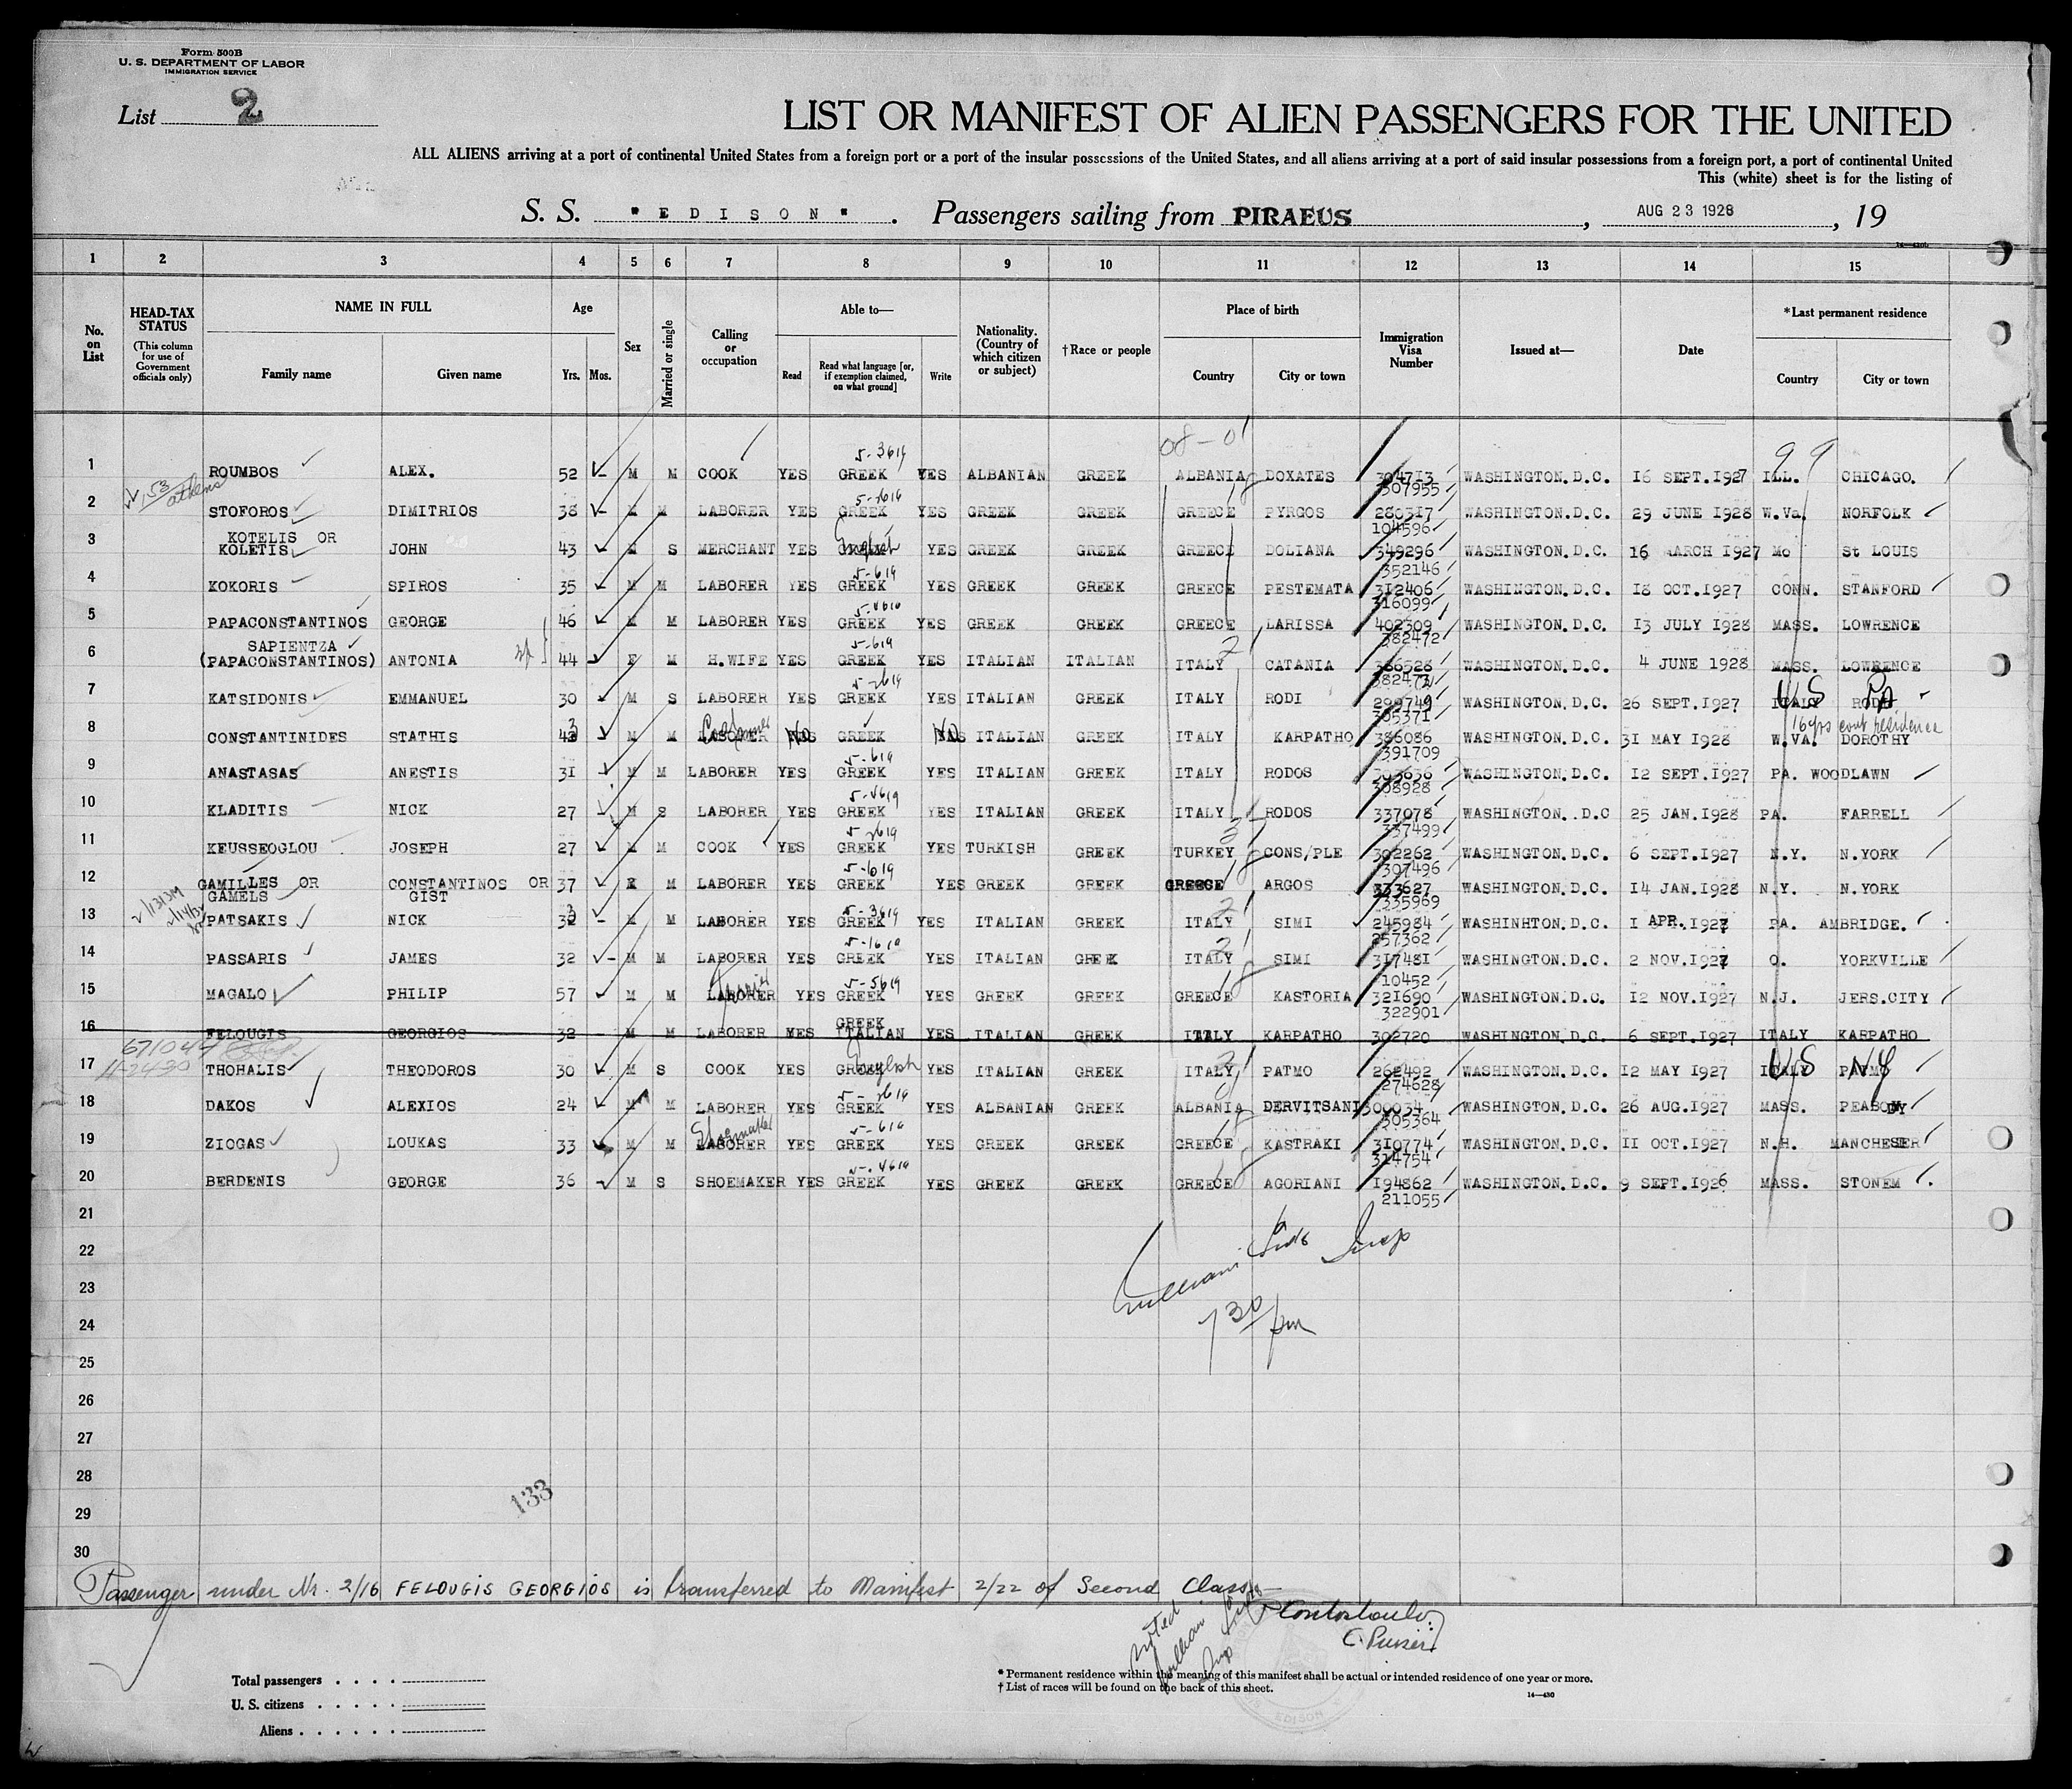 Form 500B
U. S. DEPARTMENT OF LABOR
IMMIGRATION SERVICE
List 2
LIST OR MANIFEST OF ALIEN PASSENGERS FOR THE UNITED
ALL ALIENS arriving at a port of continental United States from a foreign port or a port of the insular possessions of the United States, and all aliens arriving at a port of said insular possessions from a foreign port, a port of continental United
This (white) sheet is for the listing of
S. S. "EDISON". Passengers sailing from PIRAEUS, AUG 23 1928, 19
1 2 3 4 5 6 7 8 9 10 11 12 13 14 15
No. on List
HEAD-TAX STATUS (This column for use of Government officials only)
NAME IN FULL Family name Given name
Age Yrs. Mos.
Sex
Married or single
Calling or occupation
Able to— Read Read what language [or, if exemption claimed, on what ground] Write
Nationality. (Country of which citizen or subject)
†Race or people
Place of birth Country City or town
Immigration Visa Number
Issued at—
Date
*Last permanent residence Country City or town
08-01 99
5-3619
1 ROUMBOS ALEX. 52 M M COOK YES GREEK YES ALBANIAN GREEK ALBANIA DOXATES 304713 WASHINGTON.D.C. 16 SEPT.1927 ILL. CHICAGO.
53 athens 307955
2 STOFOROS DIMITRIOS 38 M M LABORER YES GREEK YES GREEK GREEK GREECE PYRGOS 280317 WASHINGTON.D.C. 29 JUNE 1928 W.Va. NORFOLK
KOTELIS OR English 104596
3 KOLETIS JOHN 43 M S MERCHANT YES GREEK YES GREEK GREEK GREECE DOLIANA 349296 WASHINGTON.D.C. 16 MARCH 1927 Mo St LOUIS
5-619 352146
4 KOKORIS SPIROS 35 M M LABORER YES GREEK YES GREEK GREEK GREECE PESTEMATA 312406 WASHINGTON.D.C. 18 OCT.1927 CONN. STANFORD
316099
5 PAPACONSTANTINOS GEORGE 46 M M LABORER YES GREEK YES GREEK GREEK GREECE LARISSA 402309 WASHINGTON.D.C. 13 JULY 1928 MASS. LOWRENCE
SAPIENTZA 5-619 382472
6 (PAPACONSTANTINOS) ANTONIA 44 F M H.WIFE YES GREEK YES ITALIAN ITALIAN ITALY CATANIA 386528 WASHINGTON.D.C. 4 JUNE 1928 MASS. LOWRENCE
5-2619 382473
7 KATSIDONIS EMMANUEL 30 M S LABORER YES GREEK YES ITALIAN GREEK ITALY RODI 299749 WASHINGTON.D.C. 26 SEPT.1927 ITALY RODI US Pa
305371 16 yrs cont residence
8 CONSTANTINIDES STATHIS 43 M M LABORER No GREEK No ITALIAN GREEK ITALY KARPATHO 386086 WASHINGTON.D.C. 31 MAY 1928 W.VA. DOROTHY
5-619 391709
9 ANASTASAS ANESTIS 31 M M LABORER YES GREEK YES ITALIAN GREEK ITALY RODOS 303636 WASHINGTON.D.C. 12 SEPT.1927 PA. WOODLAWN
5-4619 308928
10 KLADITIS NICK 27 M S LABORER YES GREEK YES ITALIAN GREEK ITALY RODOS 337078 WASHINGTON..D.C 25 JAN.1928 PA. FARRELL
5-2619 337499
11 KEUSSEOGLOU JOSEPH 27 M M COOK YES GREEK YES TURKISH GREEK TURKEY CONS/PLE 302262 WASHINGTON.D.C. 6 SEPT.1927 N.Y. N.YORK
5-619 307496
12 GAMILLES OR CONSTANTINOS OR 37 M M LABORER YES GREEK YES GREEK GREEK GREECE ARGOS 333627 WASHINGTON.D.C. 14 JAN.1928 N.Y. N.YORK
GAMELS GIST 335969
13 PATSAKIS NICK 32 M M LABORER YES GREEK YES ITALIAN GREEK ITALY SIMI 245984 WASHINHTON.D.C. 1 APR.1927 PA. AMBRIDGE.
5-1619 257362
14 PASSARIS JAMES 32 M M LABORER YES GREEK YES ITALIAN GREEK ITALY SIMI 317481 WASHINGTON.D.C. 2 NOV.1927 O. YORKVILLE
5-5619 10452
15 MAGALO PHILIP 57 M M LABORER YES GREEK YES GREEK GREEK GREECE KASTORIA 321690 WASHINGTON.D.C. 12 NOV.1927 N.J. JERS.CITY
GREEK 322901
16 FELOUGIS GEORGIOS 32 M M LABORER YES ITALIAN YES ITALIAN GREEK ITALY KARPATHO 302720 WASHINGTON.D.C. 6 SEPT.1927 ITALY KARPATHO
671044 11-24-30 English
17 THOHALIS THEODOROS 30 M S COOK YES GREEK YES ITALIAN GREEK ITALY PATMO 262492 WASHINGTON.D.C. 12 MAY 1927 ITALY PATMO US NY
5-2619 274628
18 DAKOS ALEXIOS 24 M M LABORER YES GREEK YES ALBANIAN GREEK ALBANIA DERVITSANI 300034 WASHINGTON.D.C. 26 AUG.1927 MASS. PEABODY
Shoemaker 5-619 305364
19 ZIOGAS LOUKAS 33 M M LABORER YES GREEK YES GREEK GREEK GREECE KASTRAKI 310774 WASHINGTON.D.C. 11 OCT.1927 N.H. MANCHESER
5-4619 314754
20 BERDENIS GEORGE 36 M S SHOEMAKER YES GREEK YES GREEK GREEK GREECE AGORIANI 194862 WASHINGTON.D.C. 9 SEPT.1926 MASS. STONEM
211055
21
22
23
24 7 30 pm
25
26
27
28
29 133
30
Passenger under Nr. 2/16 FELOUGIS GEORGIOS is transferred to Manifest 2/22 of Second Class
noted
Total passengers
U. S. citizens
Aliens
* Permanent residence within the meaning of this manifest shall be actual or intended residence of one year or more.
† List of races will be found on the back of this sheet.
14—430
EDISON